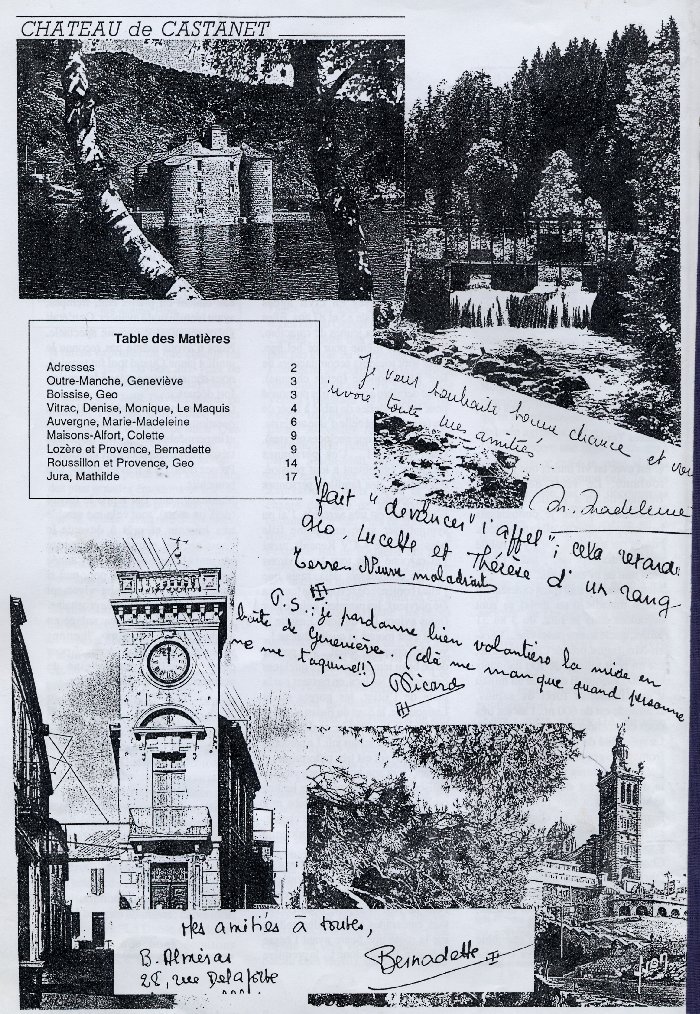 CHATEAU de CASTANET
Table des Matières
Adresses 2
Outre-Manche, Geneviève 3
Boissise, Geo 3
Vitrac, Denise, Monique, Le Maquis 4
Auvergne, Marie-Madeleine 6
Maisons-Alfort, Colette 9
Lozère et Provence, Bernadette 9
Roussillon et Provence, Geo 14
Jura, Mathilde 17
Je vous souhaite bonne chance et vou
envoie toute mes amitiés
M. Madeleine
"fait "devancer" l'appel"; cela retarde
Géo, Lucette et Thérèse d'un rang
Terre Neuve maladroit
P.S.: je pardonne bien volontiers la mise en
boîte de Geneviève. (celà me manque quand personne
ne me taquine!!)
Mes amitiés à toutes,
B. Alméras
rue Delaporte
Bernadette